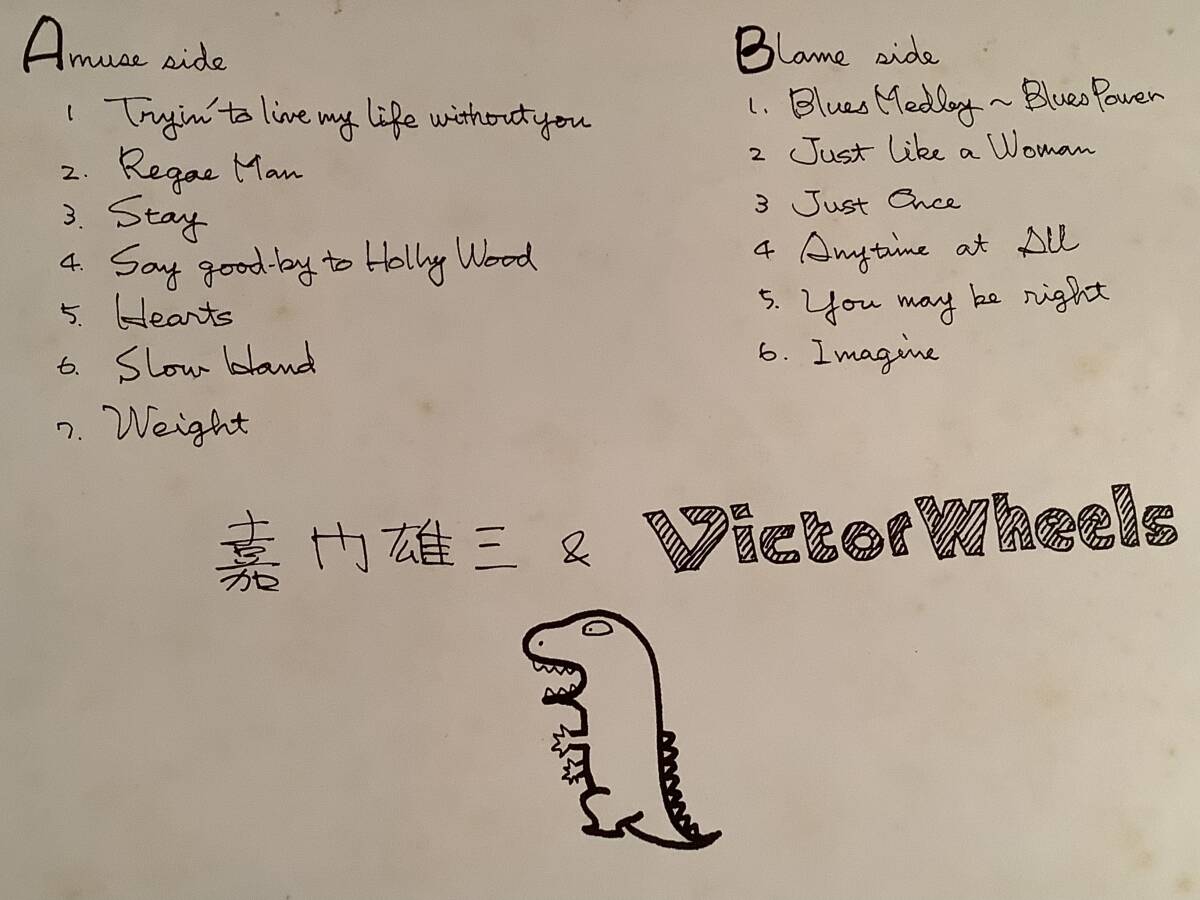 Amuse side
1 Tryin' to live my life without you
2. Regae Man
3. Stay
4. Say good-by to Holly Wood
5. Hearts
6. Slow Hand
7. Weight
Blame side
1. Blues Medley ~ Blues Power
2 Just like a Woman
3 Just Once
4 Anytime at All
5. You may be right
6. Imagine
嘉門雄三 & Victor Wheels